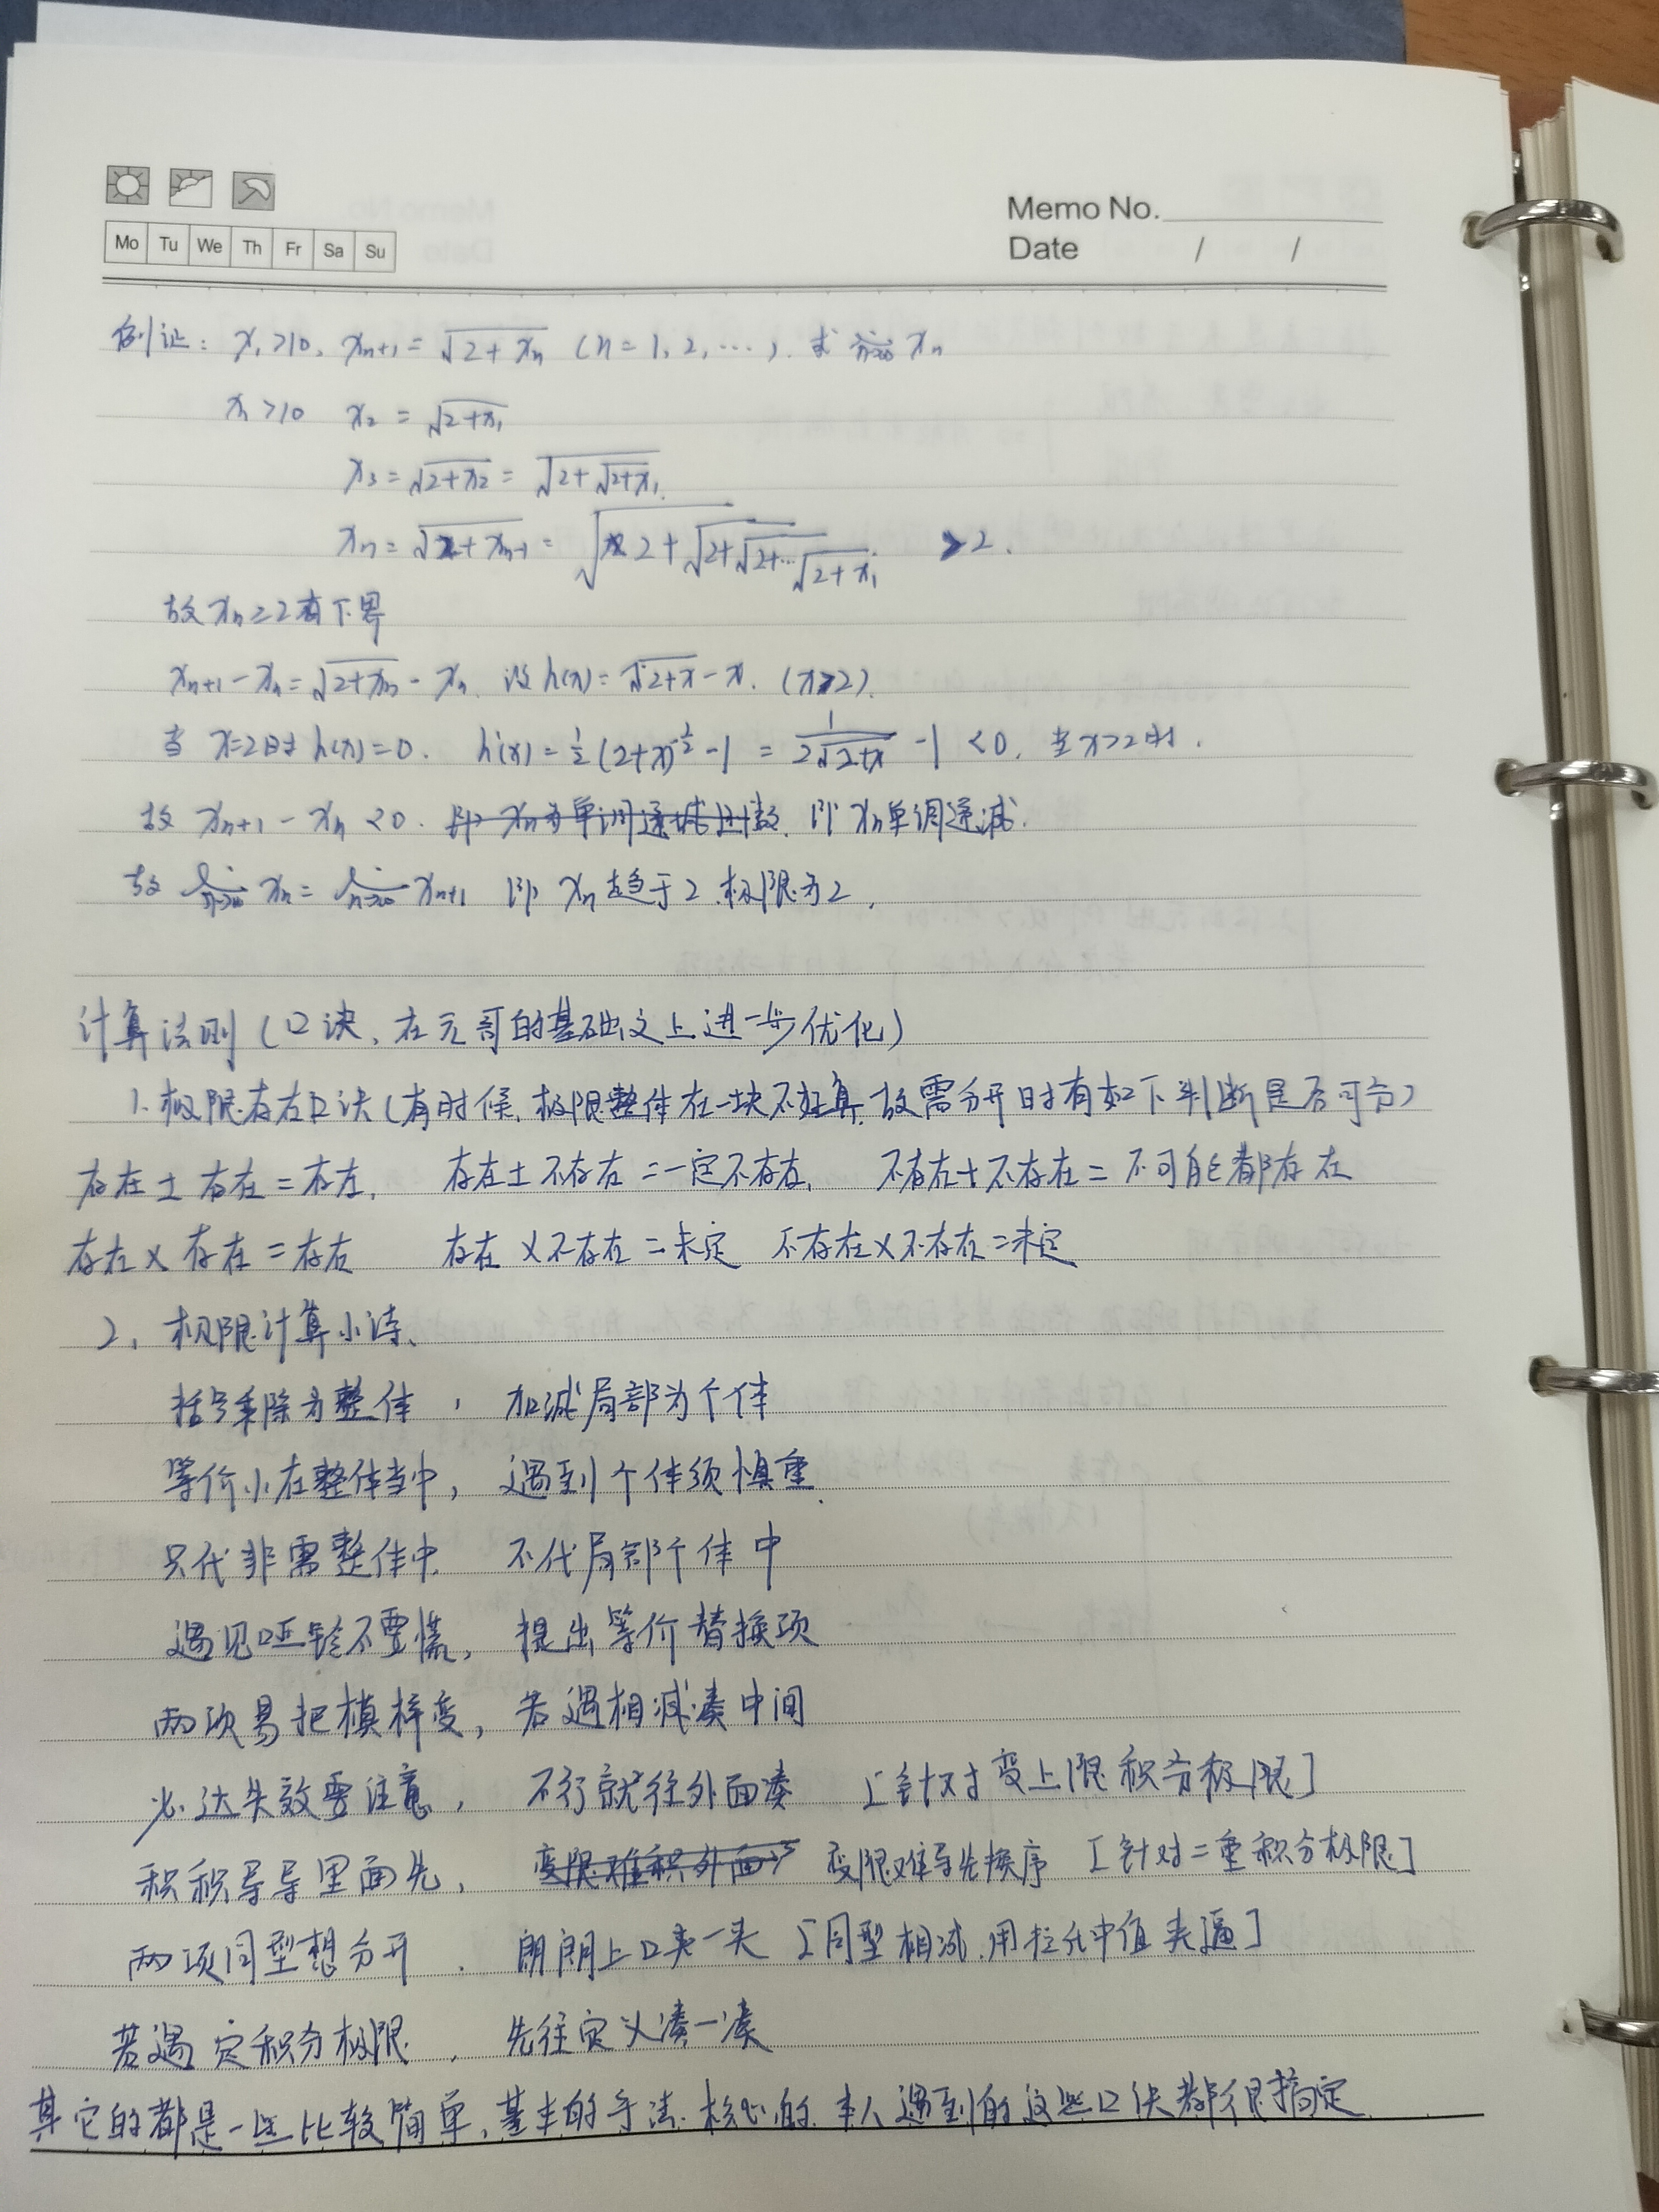 Memo No.
Mo Tu We Th Fr Sa Su
Date / /
例证: x₁>10, xₙ₊₁=√(2+xₙ) (n=1,2,…). 求 lim n→∞ xₙ
x₁>10 x₂=√(2+x₁)
x₃=√(2+x₂)=√(2+√(2+x₁))
xₙ=√(2+xₙ₋₁)=√(2+√(2+√(2+…√(2+x₁)))) >2.
故xₙ≥2有下界
xₙ₊₁-xₙ=√(2+xₙ)-xₙ. 设h(x)=√(2+x)-x. (x≥2).
当 x=2时h(x)=0. h'(x)=½(2+x)^(-½)-1=1/(2√(2+x))-1<0, 当x>2时.
故 xₙ₊₁-xₙ<0. 即xₙ单调递减.
故 lim n→∞ xₙ=lim n→∞ xₙ₊₁ 即 xₙ趋于2.极限为2.
计算法则(口诀、在元哥的基础之上进一步优化)
1.极限存在口诀(有时候,极限整体在一块不好算,故需分开时有如下判断是否可分)
存在±存在=存在, 存在±不存在=一定不存在, 不存在±不存在=不可能都存在
存在×存在=存在 存在×不存在=未定 不存在×不存在=未定
2. 极限计算小诗、
括号乘除为整体, 加减局部为个体
等价小在整体当中, 遇到个体须慎重.
只代非零整体中, 不代局部个体中
遇见哑铃不要慌, 提出等价替换项
两项易把模样变, 若遇相减凑中间
必达失效要注意, 不行就往外面凑 [针对变上限积分极限]
积积导导里面先, 变限难导先换序 [针对二重积分极限]
两项同型想分开, 朗朗上口夹一夹 [同型相减,用拉氏中值夹逼]
若遇定积分极限, 先往定义凑一凑
其它的都是一些比较简单,基本的手法.核心的.本人遇到的这些口诀都很搞定